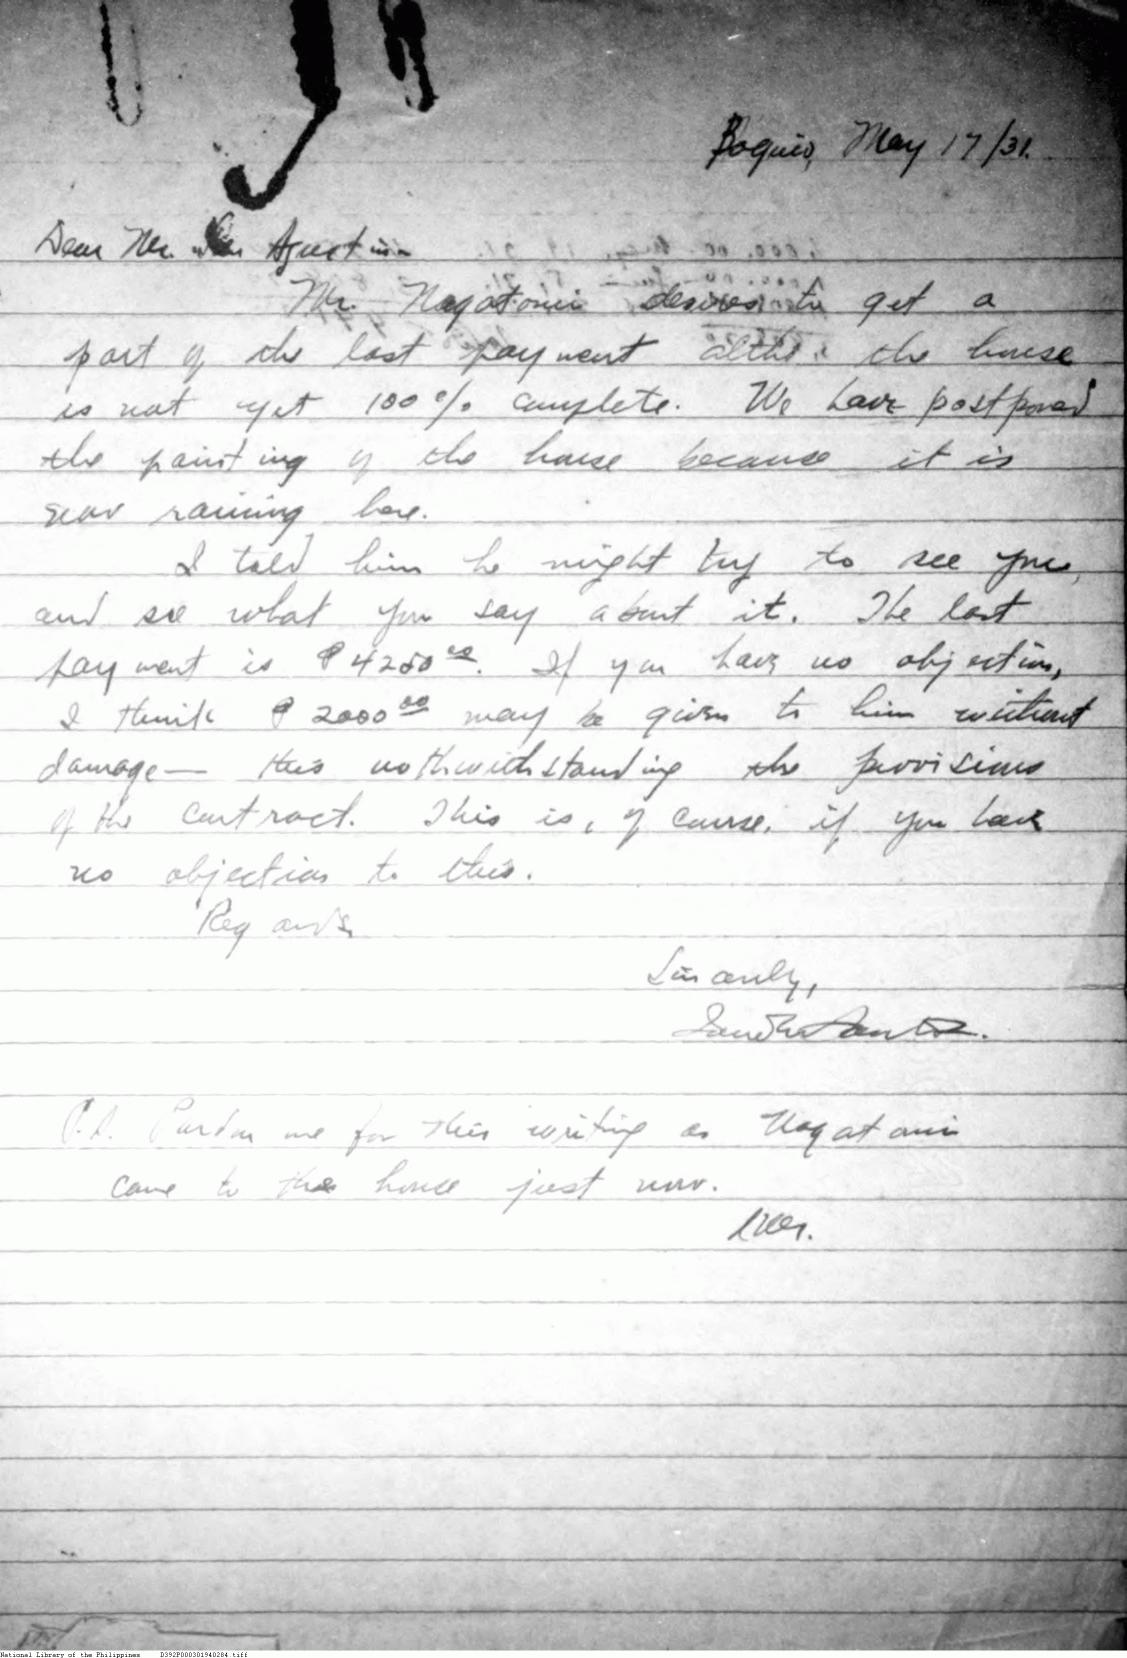 Baguio, May 17/31.
Dear Mr. San Agustin
Mr. Nagatomi desires to get a
part of the last payment altho. the house
is not yet 100% complete. We have postponed
the painting of the house because it is
now raining here.
I told him he might try to see you,
and see what you say about it. The last
payment is ₱4250.00. If you have no objection,
I think ₱2000.00 may be given to him without
damage— this nothwithstanding the provisions
of the contract. This is, of course, if you have
no objection to this.
Regards,
Sincerely,
P.S. Pardon me for this writing as Nagatomi
came to the house just now.
National Library of the Philippines D392P000301940284.tiff